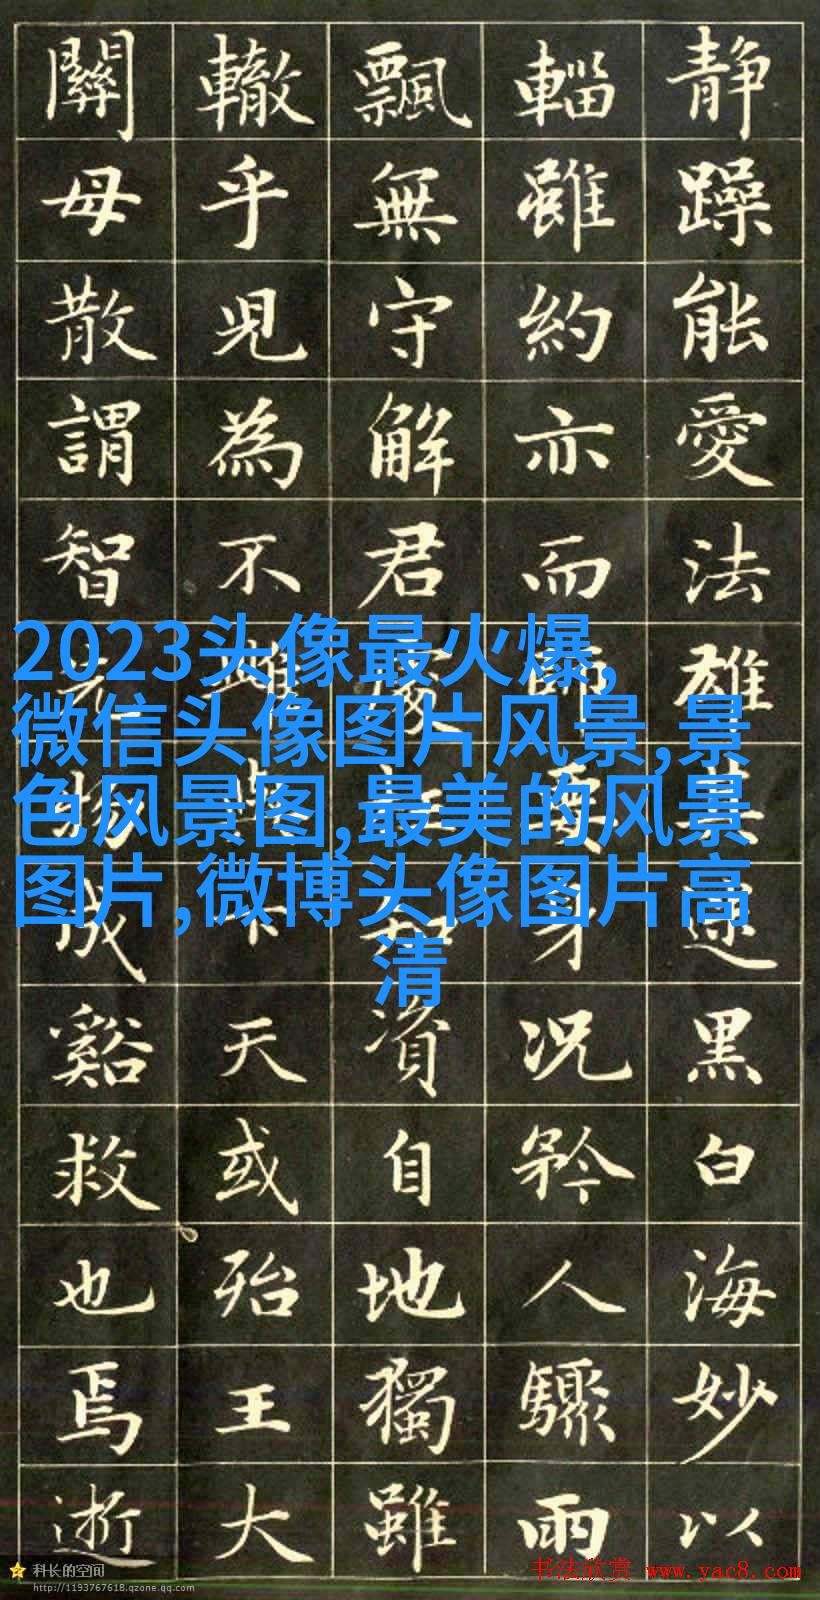 静躁能愛法雄黑白海妙以
輜雖約亦而身況矜人驟雨
飄無守解君資自地獨雖
轍乎見為不天或殆王大
關母散謂智物成谿救也焉逝
2023头像最火爆,
微信头像图片风景,景
色风景图,最美的风景
图片,微博头像图片高
清
科长的空间
http://1193767618.qzone.qq.com
书法欣赏 www.yac8.com